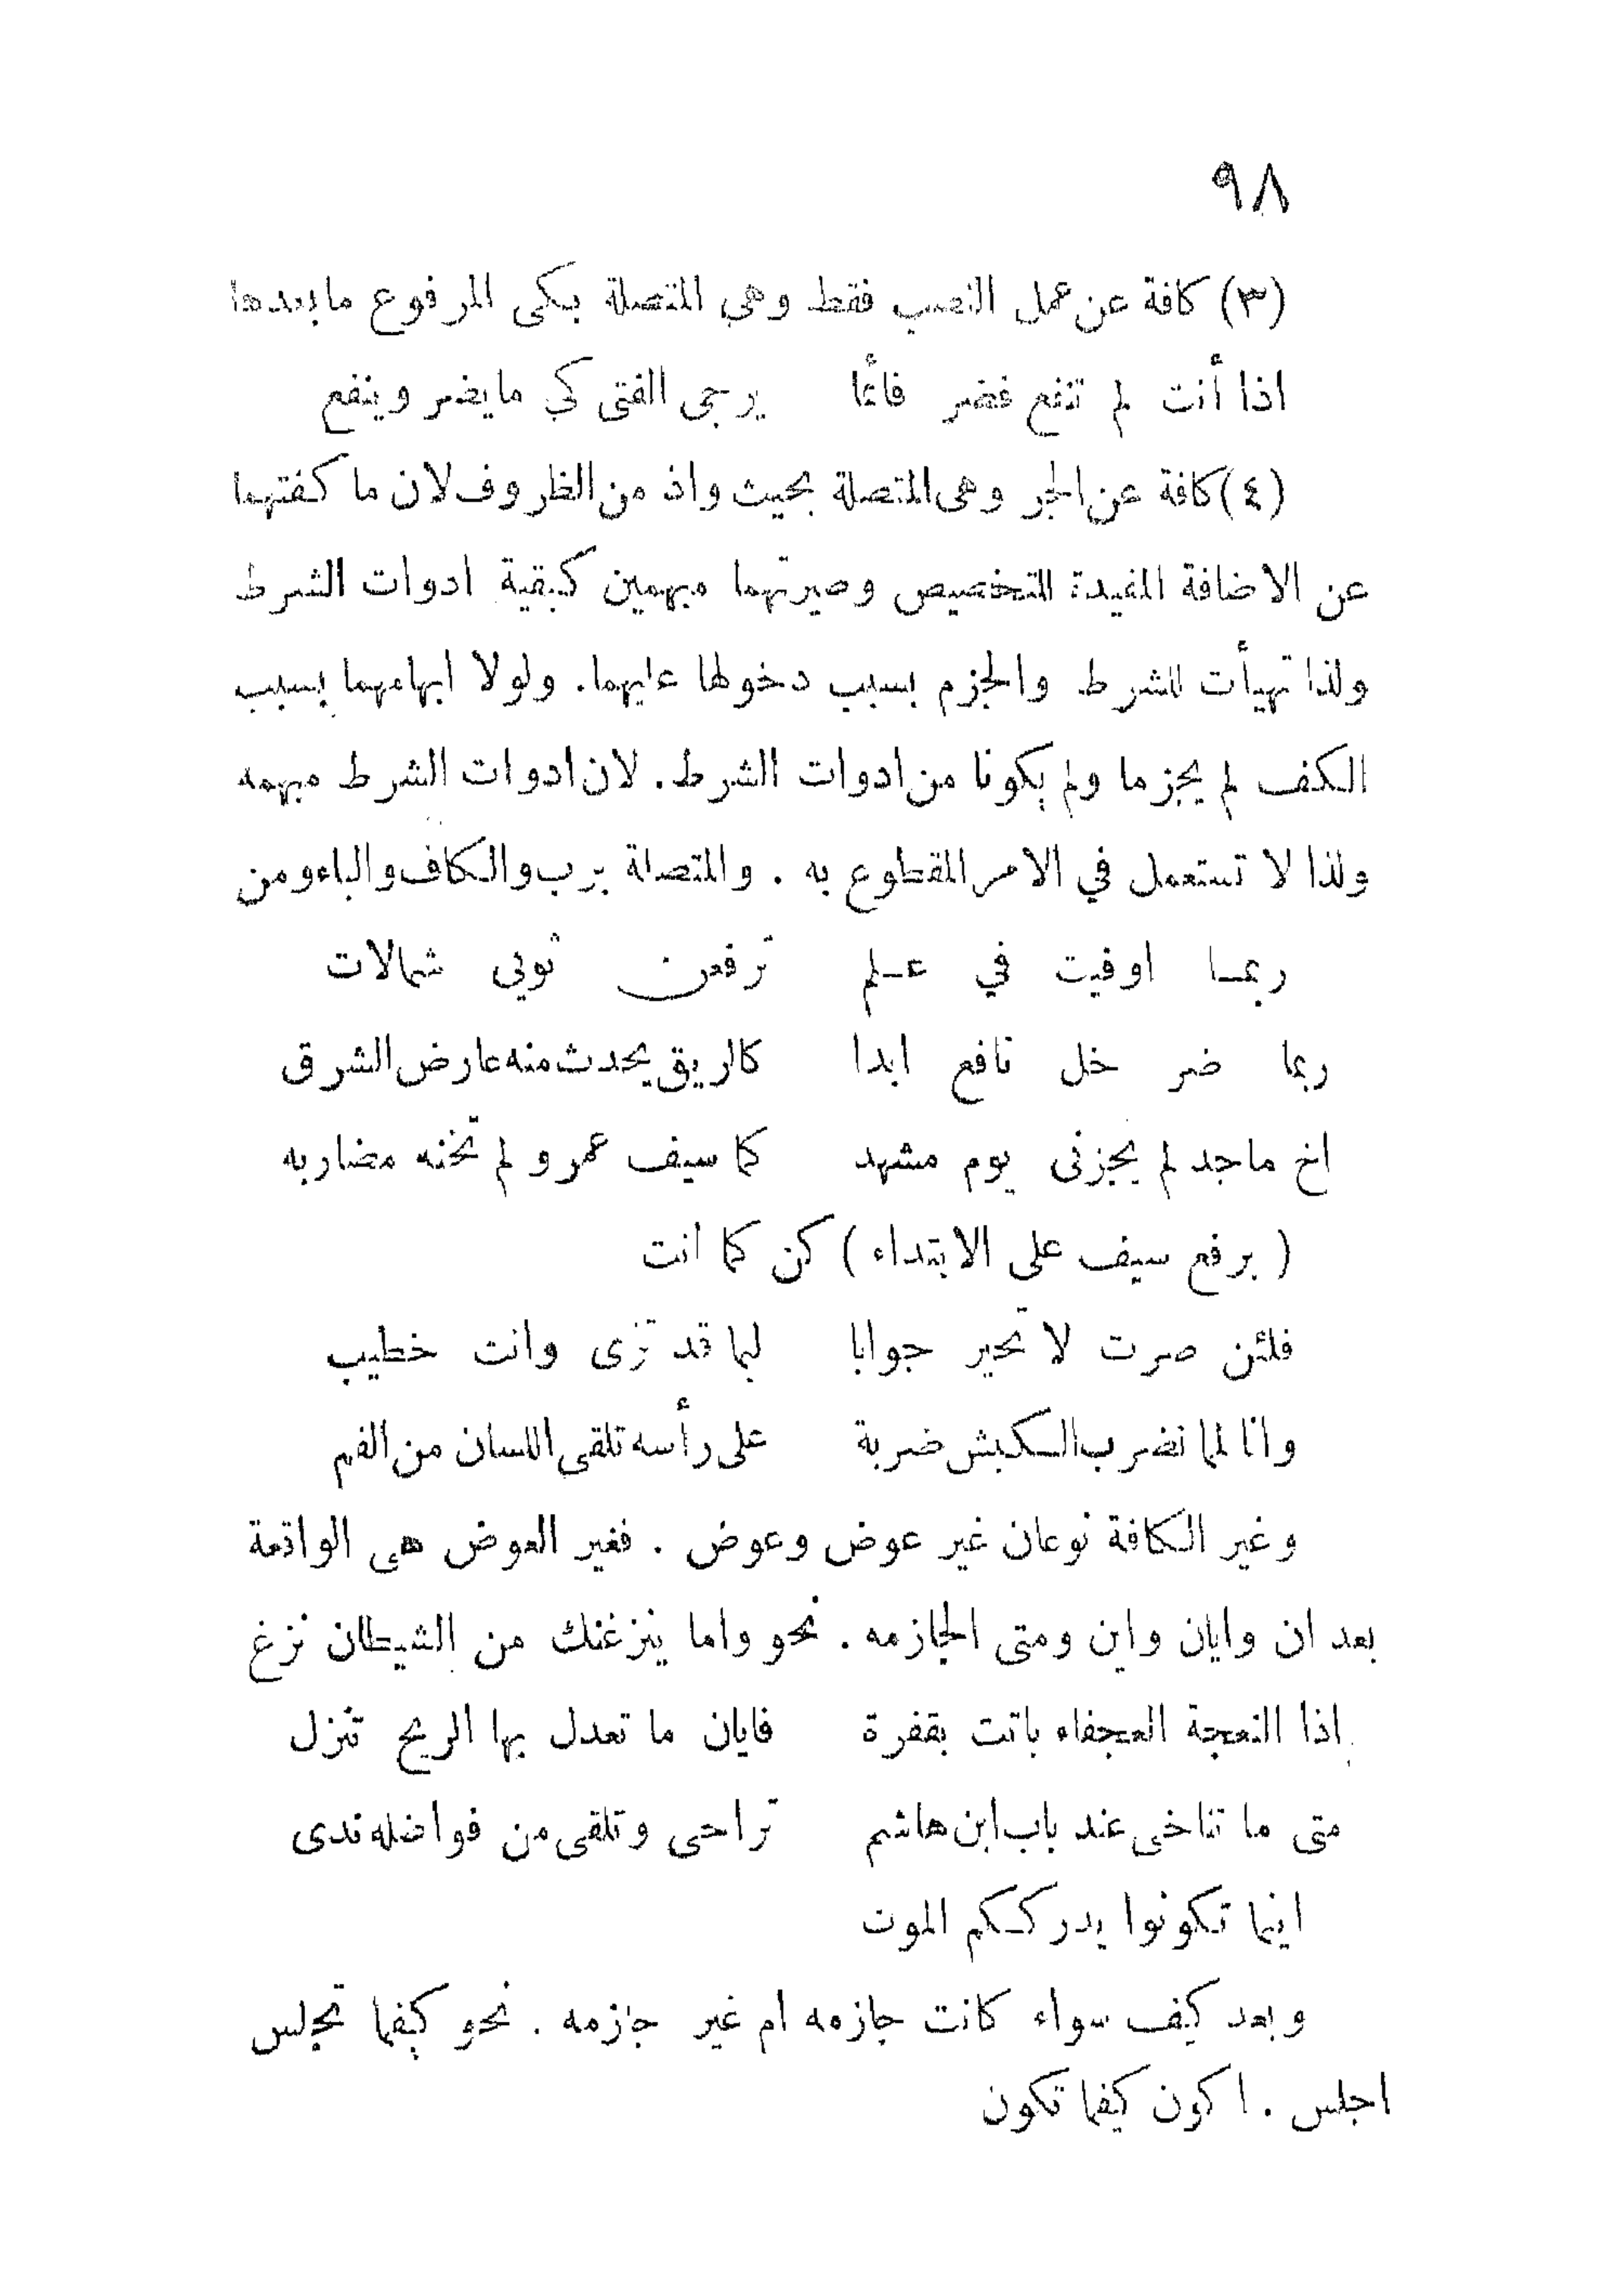 ٩٨
(٣) كافة عن عمل النصب فقط وهي المتصلة بكى المرفوع ما بعدها
اذا أنت لم تنفع فضر فانما يرجى الفتى كي ما يضر وينفع
(٤) كافة عن الجر وهى المتصلة بحيث واذ من الظروف لان ما كفتهما
عن الاضافة المفيدة للتخصيص وصيرتهما مبهمين كبقية ادوات الشرط
ولذا تهيأت للشرط والجزم بسبب دخولها عليهما. ولولا ابهامهما بسبب
الكف لم يجزما ولم يكونا من ادوات الشرط. لان ادوات الشرط مبهمه
ولذا لا تستعمل في الامر المقطوع به . والمتصلة برب والكاف والباء ومن
ربمـا اوفيت في عـلم ترفعن ثوبي شمالات
ربما ضر خل نافع ابدا كالريق يحدث منه عارض الشرق
اخ ماجد لم يجزنى يوم مشهد كما سيف عمرو لم تخنه مضاربه
( برفع سيف على الابتداء ) كن كما انت
فلئن صرت لا تحير جوابا لبما قد ترى وانت خطيب
وانا لمما نضرب الكبش ضربة على رأسه تلقى اللسان من الفم
وغير الكافة نوعان غير عوض وعوض . فغير العوض هى الواقعة
بعد ان وايان واين ومتى الجازمه . نحو واما ينزغنك من الشيطان نزغ
اذا النعجة العجفاء باتت بقفرة فايان ما تعدل بها الريح تنزل
متى ما تناخى عند باب ابن هاشم تراحى وتلقى من فواضله ندى
اينما تكونوا يدرككم الموت
وبعد كيف سواء كانت جازمه ام غير جازمه . نحو كيفما تجلس
اجلس . اكون كيفما تكون